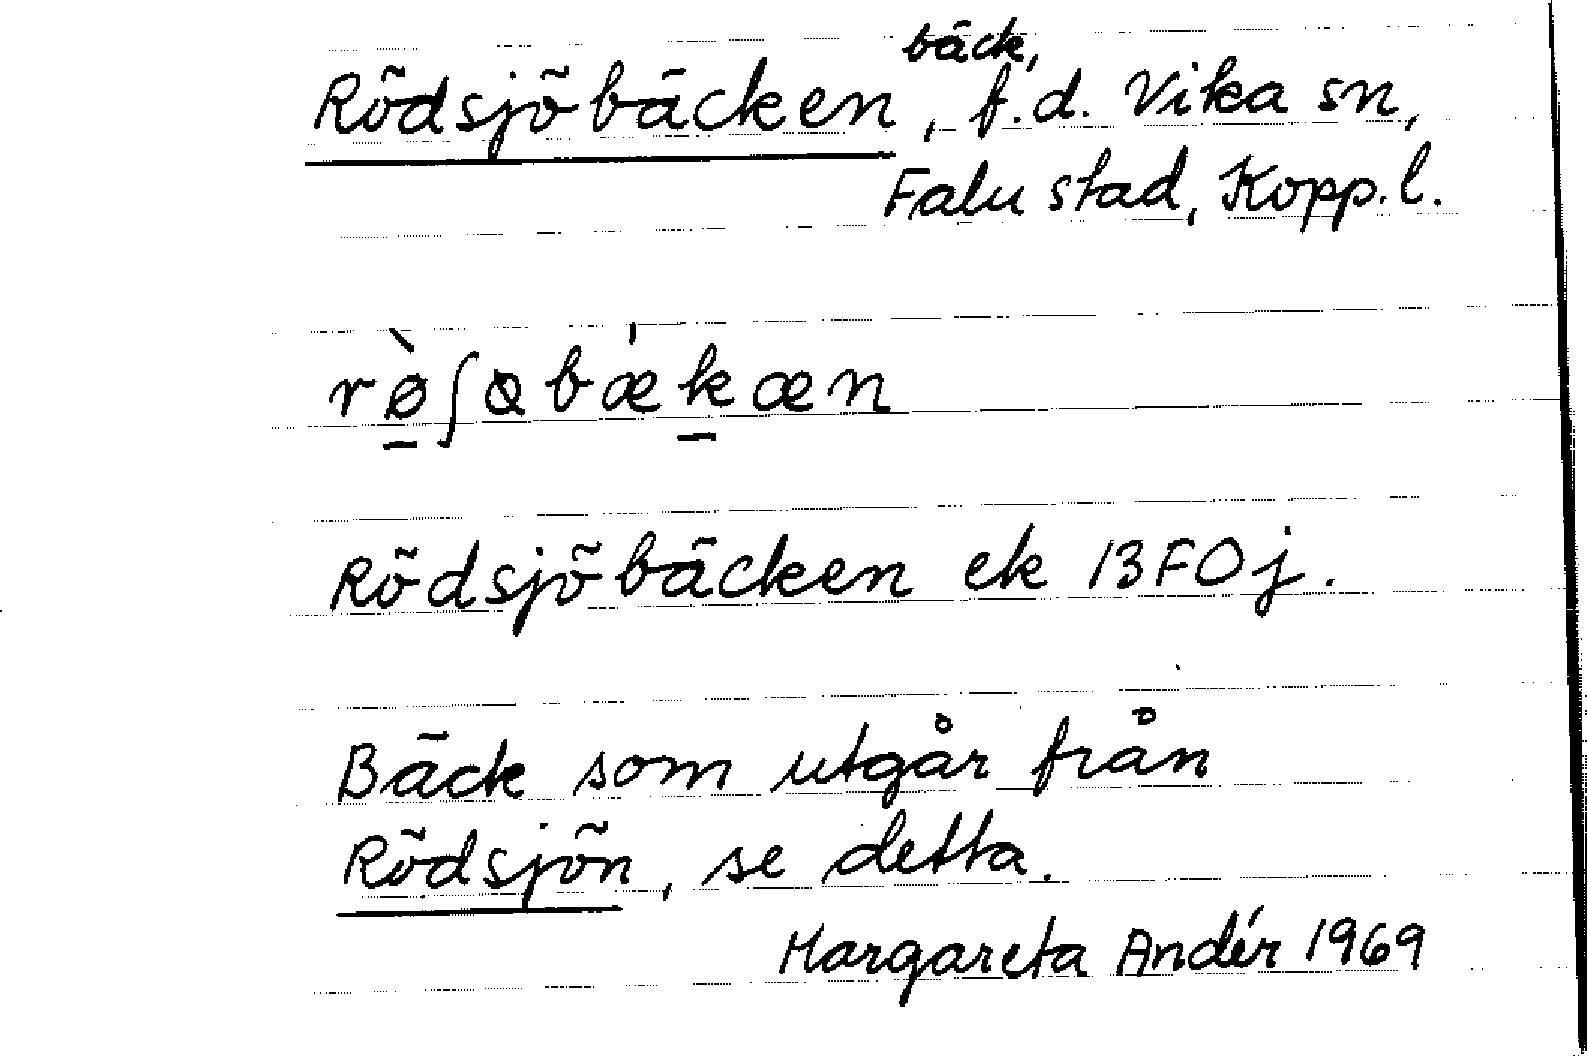 Rödsjöbäcken, bäck, f.d. Vika sn,
Falu stad, Kopp.l.
rø̀ʃɵbæ̍kæn
Rödsjöbäcken ek 13FOj.
Bäck som utgår från
Rödsjön, se detta.
Margareta Andér 1969